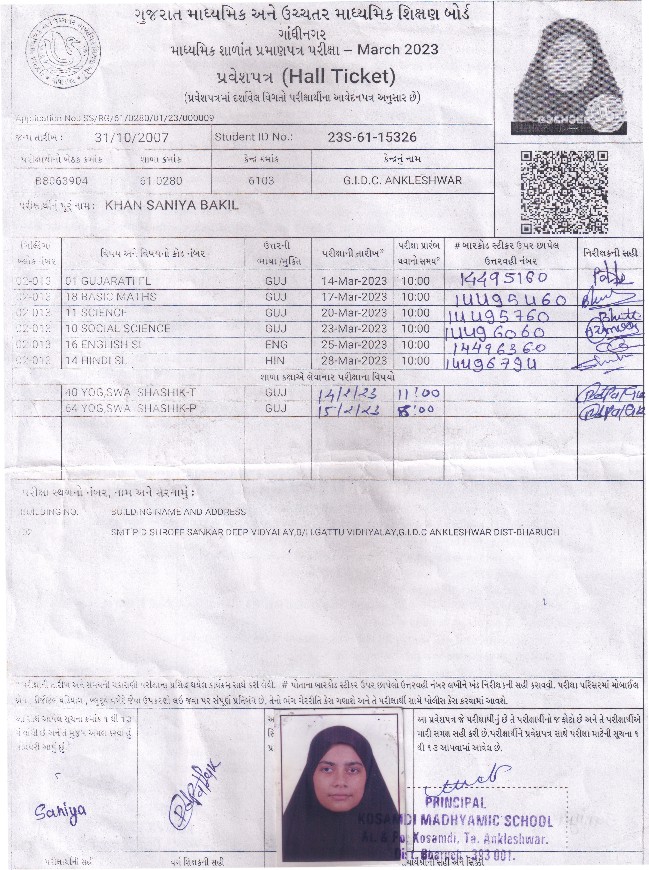 ગુજરાત માધ્યમિક અને ઉચ્ચતર માધ્યમિક શિક્ષણ બોર્ડ
ગાંધીનગર
માધ્યમિક શાળાંત પ્રમાણપત્ર પરીક્ષા – March 2023
પ્રવેશપત્ર (Hall Ticket)
(પ્રવેશપત્રમાં દર્શાવેલ વિગતો પરીક્ષાર્થીના આવેદનપત્ર અનુસાર છે)
Application No.: SS/RG/61/0280/01/23/000009
જન્મ તારીખ : 31/10/2007 Student ID No.: 23S-61-15326
પરીક્ષાર્થીનો બેઠક ક્રમાંક શાળા ક્રમાંક કેન્દ્ર ક્રમાંક કેન્દ્રનું નામ
B8063904 61.0280 6103 G.I.D.C. ANKLESHWAR
પરીક્ષાર્થીનું પૂરું નામ : KHAN SANIYA BAKIL
વિષય અને વિષયનો કોડ નંબર ઉત્તરની ભાષા/મુક્તિ પરીક્ષાની તારીખ* પરીક્ષા પ્રારંભ થવાનો સમય* # બારકોડ સ્ટીકર ઉપર છાપેલ ઉત્તરવહી નંબર નિરીક્ષકની સહી
02-013 01 GUJARATI FL GUJ 14-Mar-2023 10:00 14495160
02-013 18 BASIC MATHS GUJ 17-Mar-2023 10:00 14495460
02-013 11 SCIENCE GUJ 20-Mar-2023 10:00 14495760
02-013 10 SOCIAL SCIENCE GUJ 23-Mar-2023 10:00 14496060
02-013 16 ENGLISH SL ENG 25-Mar-2023 10:00 14496360
02-013 14 HINDI SL HIN 28-Mar-2023 10:00 14496794
શાળા કક્ષાએ લેવાનાર પરીક્ષાના વિષયો
40 YOG,SWA SHASHIK-T GUJ 14/2/23 11:00
64 YOG,SWA SHASHIK-P GUJ 15/2/23 8:00
પરીક્ષા સ્થળનો નંબર, નામ અને સરનામું :
BUILDING NO. BUILDING NAME AND ADDRESS
02 SMT P D SHROFF SANKAR DEEP VIDYALAY,B/H.GATTU VIDHYALAY,G.I.D.C ANKLESHWAR DIST-BHARUCH
# પોતાના બારકોડ સ્ટીકર ઉપર છાપેલો ઉત્તરવહી નંબર લખીને ખંડ નિરીક્ષકની સહી કરાવવી. પરીક્ષા પરિસરમાં મોબાઈલ
આ પ્રવેશપત્ર જે પરીક્ષાર્થીનું છે તે પરીક્ષાર્થીનો જ ફોટો છે અને તે પરીક્ષાર્થીએ
મારી સમક્ષ સહી કરી છે. પરીક્ષાર્થીને પ્રવેશપત્ર સાથે પરીક્ષા માટેની સૂચના ૧
થી ૧૩ આપવામાં આવેલ છે.
Saniya
PRINCIPAL
KOSAMDI MADHYAMIC SCHOOL
At. & Po. Kosamdi, Ta. Ankleshwar.
Dist. Bharuch - 393 001.
પરીક્ષાર્થીની સહી વર્ગ શિક્ષકની સહી